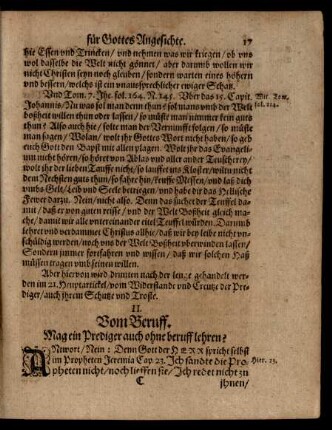 für Gottes Angesichte. 17
hie Essen vnd Trincken/ vnd nehmen was wir kriegen/ ob vns
wol dasselbe die Welt nicht gönnet/ aber darumb wollen wir
nicht Christen seyn noch gleuben/ sondern warten eines höhern
vnd bessern/ welchs ist ein vnaussprechlicher ewiger Schatz.
Vnd Tom. 7. Jhe. fol. 164. N. 245. Vber das 15. Capit. Wit. Tom.
Johannis/ Nu was sol man denn thun? sol man vmb der Welt fol. 214.
boßheit willen thun oder lassen/ so müste man nimmer kein guts
thun? Also auch hie/ solte man der Vernunfft folgen/ so müste
man sagen/ Wolan/ wolt jhr Gottes Wort nicht haben/ so geb
euch Gott den Bapst mit allen plagen. Wolt jhr das Evangeli-
um nicht hören/ so höret von Ablas vnd aller ander Teuscherey/
wolt jhr der lieben Tauffe nicht/ so lauffet ins Kloster/ wiltu nicht
dem Nechsten guts thun/ so fahre hin/ keuffe Messen/ vnd laß dich
vmbs Gelt/ Leib vnd Seele betriegen/ vnd habe dir das Hellische
Fewer darzu. Nein/ nicht also. Denn das suchet der Teuffel da-
mit/ daß er von guten reisse/ vnd der Welt Boßheit gleich ma-
che/ damit wir alle vntereinander eitel Teuffel würden. Darumb
lehret vnd verdammet Christus allhie/ daß wir bey leibe nicht vn-
schüldig werden/ noch vns der Welt Boßheit vberwinden lassen/
Sondern jmmer fortfahren vnd wissen/ daß wir solchen Haß
müssen tragen vmb seinen willen.
Aber hiervon wird drunten nach der lenge gehandelt wer-
den im 21. Heuptartickel/ vom Widerstande vnd Creutze der Pre-
diger/ auch jhrem Schutze vnd Troste.
II.
Vom Beruff.
Mag ein Prediger auch ohne beruff lehren?
ANtwort/ Nein: Denn Gott der HERR spricht selbst
im Propheten Jeremia Cap. 23. Ich sandte die Pro- Hier. 23.
pheten nicht/ noch lieffen sie/ Ich redet nicht zu
C jhnen/